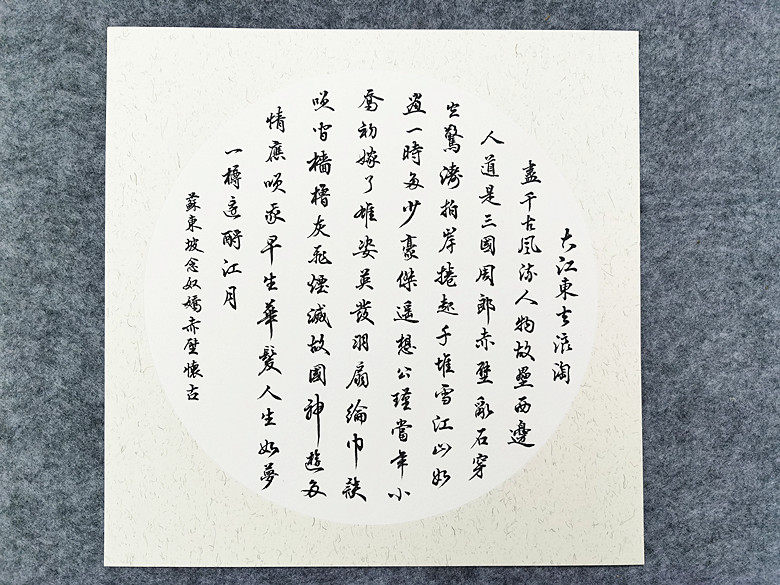 大江東去浪淘
盡千古風流人物故壘西邊
人道是三國周郎赤壁亂石穿
空驚濤拍岸捲起千堆雪江山如
畫一時多少豪傑遙想公瑾當年小
喬初嫁了雄姿英發羽扇綸巾談
笑間檣櫓灰飛煙滅故國神遊多
情應笑我早生華髮人生如夢
一樽還酹江月
蘇東坡念奴嬌赤壁懷古